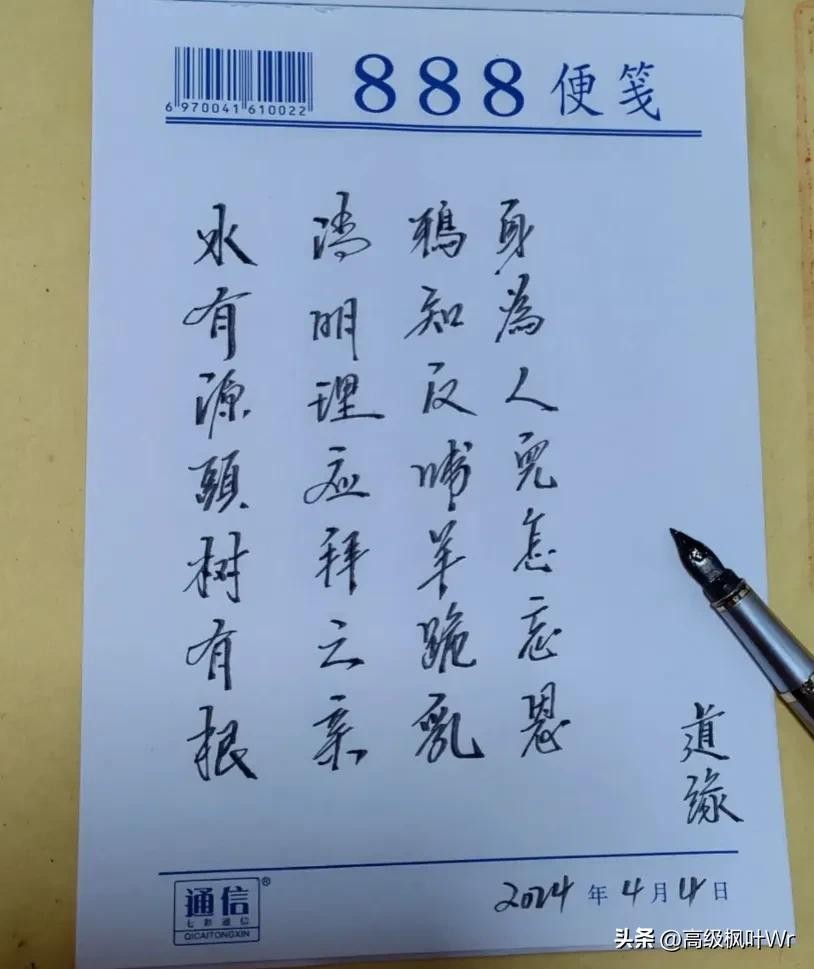 6 970041 610022
888便笺
水有源頭树有根
清明理应拜亲
鴉知反哺羊跪乳
身為人兒怎忘恩
道缘
通信®
七彩通信
QICAITONGXIN
2024年4月4日
头条 @高级枫叶Wr